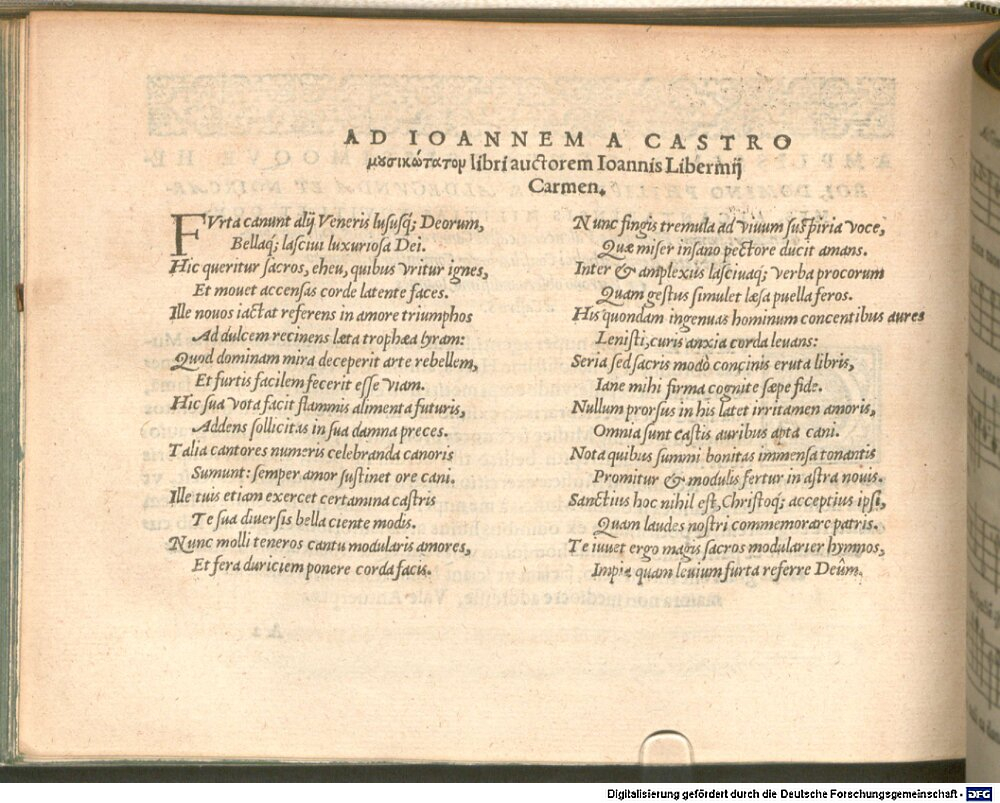 AD IOANNEM A CASTRO
μουσικώτατον libri auctorem Ioannis Libermij
Carmen.
FVrta canunt alij Veneris lususq; Deorum,
Bellaq; lasciui luxuriosa Dei.
Hic queritur sacros, eheu, quibus vritur ignes,
Et mouet accensas corde latente faces.
Ille nouos iactat referens in amore triumphos
Ad dulcem recinens læta trophæa lyram:
Quod dominam mira deceperit arte rebellem,
Et furtis facilem fecerit esse viam.
Hic sua vota facit flammis alimenta futuris,
Addens sollicitas in sua damna preces.
Talia cantores numeris celebranda canoris
Sumunt: semper amor sustinet ore cani.
Ille tuis etiam exercet certamina castris
Te sua diuersis bella ciente modis.
Nunc molli teneros cantu modularis amores,
Et fera duriciem ponere corda facis.
Nunc fingis tremula ad viuum suspiria voce,
Quæ miser insano pectore ducit amans.
Inter & amplexus lasciuaq; verba procorum
Quam gestus simulet læsa puella feros.
His quondam ingenuas hominum concentibus aures
Lenisti, curis anxia corda leuans:
Seria sed sacris modò concinis eruta libris,
Iane mihi firma cognite sæpe fide.
Nullum prorsus in his latet irritamen amoris,
Omnia sunt castis auribus apta cani.
Nota quibus summi bonitas immensa tonantis
Promitur & modulis fertur in astra nouis.
Sanctius hoc nihil est, Christoq; acceptius ipsi,
Quam laudes nostri commemorare patris.
Te iuuet ergo magis sacros modularier hymnos,
Impia quam leuium furta referre Deûm.
Digitalisierung gefördert durch die Deutsche Forschungsgemeinschaft - DFG